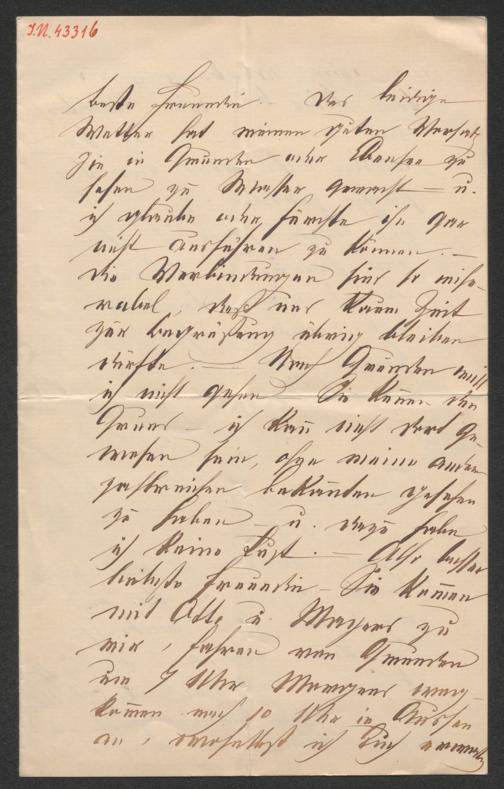 I.N. 43316
beste Freundin. Das leidige
Wetter hat meinen guten Vorsatz
Sie in Gmunden oder Ebensee zu
sehen zu Wasser gemacht – u.
ich glaube oder fürchte ihn gar
nicht ausführen zu können. –
die Verbindungen sind so mise-
rabel, daß uns kaum Zeit
zur Begrüßung übrig bleiben
dürfte. – Nach Gmunden will
ich nicht gehen. Sie kennen den
Grund – ich kan̄ nicht dort ge-
wesen sein, ohne meine anderen
zahlreichen Bekan̄ten gesehen
zu haben – u. dazu habe
ich keine Lust. – Also beste
liebste Freundin – Sie kom̄en
mit Otto u. Mayers zu
mir, fahren von Gmunden
um 7 Uhr Morgens weg –
kom̄en nach 10 Uhr in Aussee
an, woselbst ich Euch erwarte